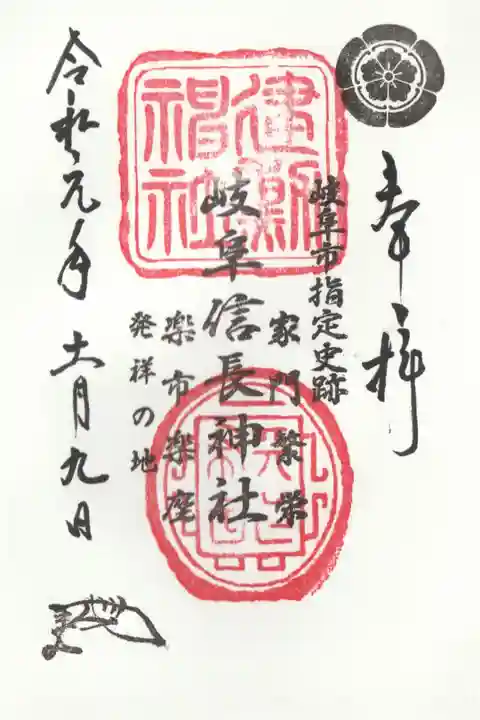 奉拝
岐阜市指定史跡
家門繁栄
岐阜信長神社
楽市楽座
発祥の地
建勲神社
令和元年十一月九日